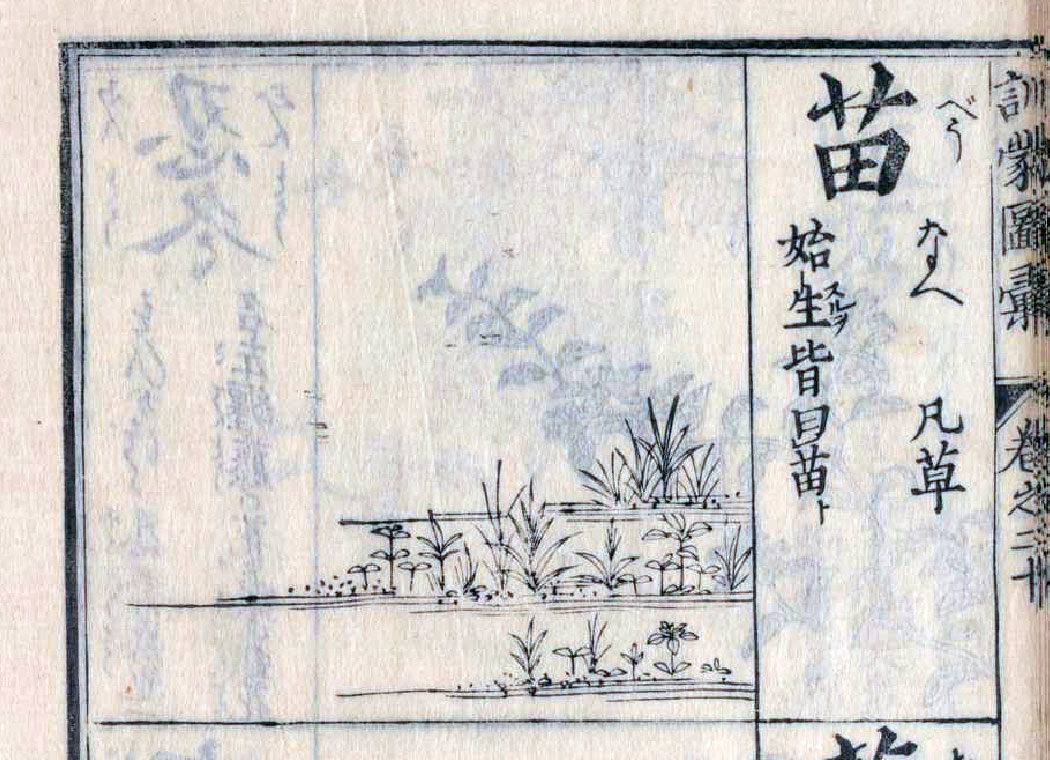 訓蒙圖彙
卷之二十
苗
べう
なへ
凡草
始生スルヲ皆曰苗ト